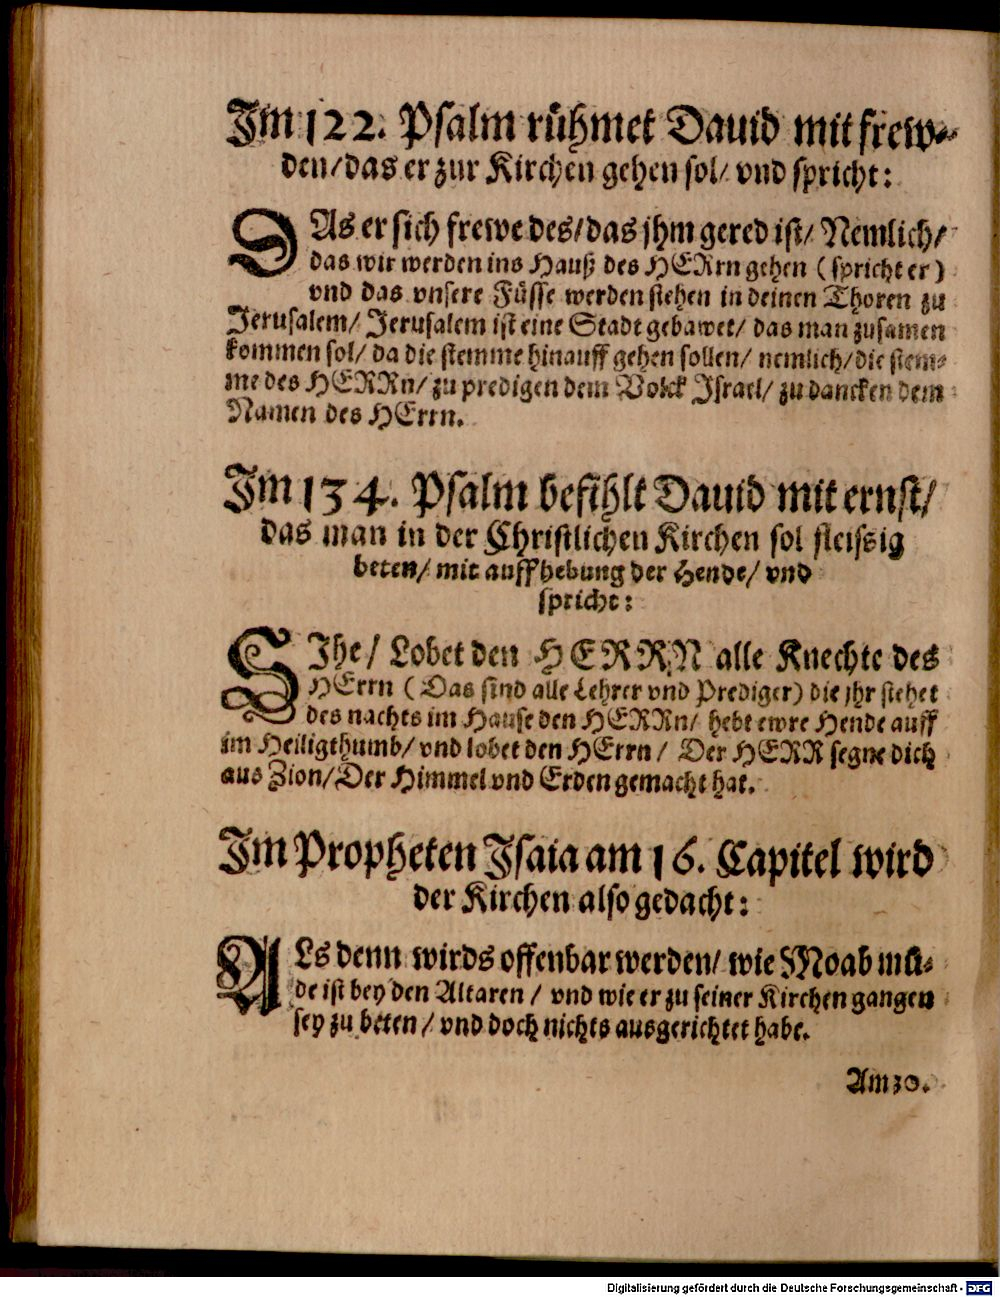 Im 122. Psalm rühmet Dauid mit frew-
den/das er zur Kirchen gehen sol/ vnd spricht:
DAs er sich frewe des/das jhm gered ist/ Nemlich/
das wir werden ins Hauß des HERrn gehen (spricht er)
vnd das vnsere Füsse werden stehen in deinen Thoren zu
Jerusalem/ Jerusalem ist eine Stadt gebawet/ das man zusamen
kommen sol/ da die stemme hinauff gehen sollen/ nemlich/die stem-
me des HERRn/ zu predigen dem Volck Israel/ zu dancken dem
Namen des HErrn.
Im 134. Psalm befihlt Dauid mit ernst/
das man in der Christlichen Kirchen sol fleissig
beten/ mit auffhebung der Hende/ vnd
spricht:
SIhe/ Lobet den HERRN alle Knechte des
HErrn (Das sind alle Lehrer vnd Prediger) die jhr stehet
des nachts im Hause den HERRn/ hebt ewre Hende auff
im Heiligthumb/ vnd lobet den HErrn/ Der HERR segne dich
aus Zion/Der Himmel vnd Erden gemacht hat.
Im Propheten Isaia am 16. Capitel wird
der Kirchen also gedacht:
ALs denn wirds offenbar werden/ wie Moab mü-
de ist bey den Altaren / vnd wie er zu seiner Kirchen gangen
sey zu beten / vnd doch nichts ausgerichtet habe.
Am 30.
Digitalisierung gefördert durch die Deutsche Forschungsgemeinschaft - DFG